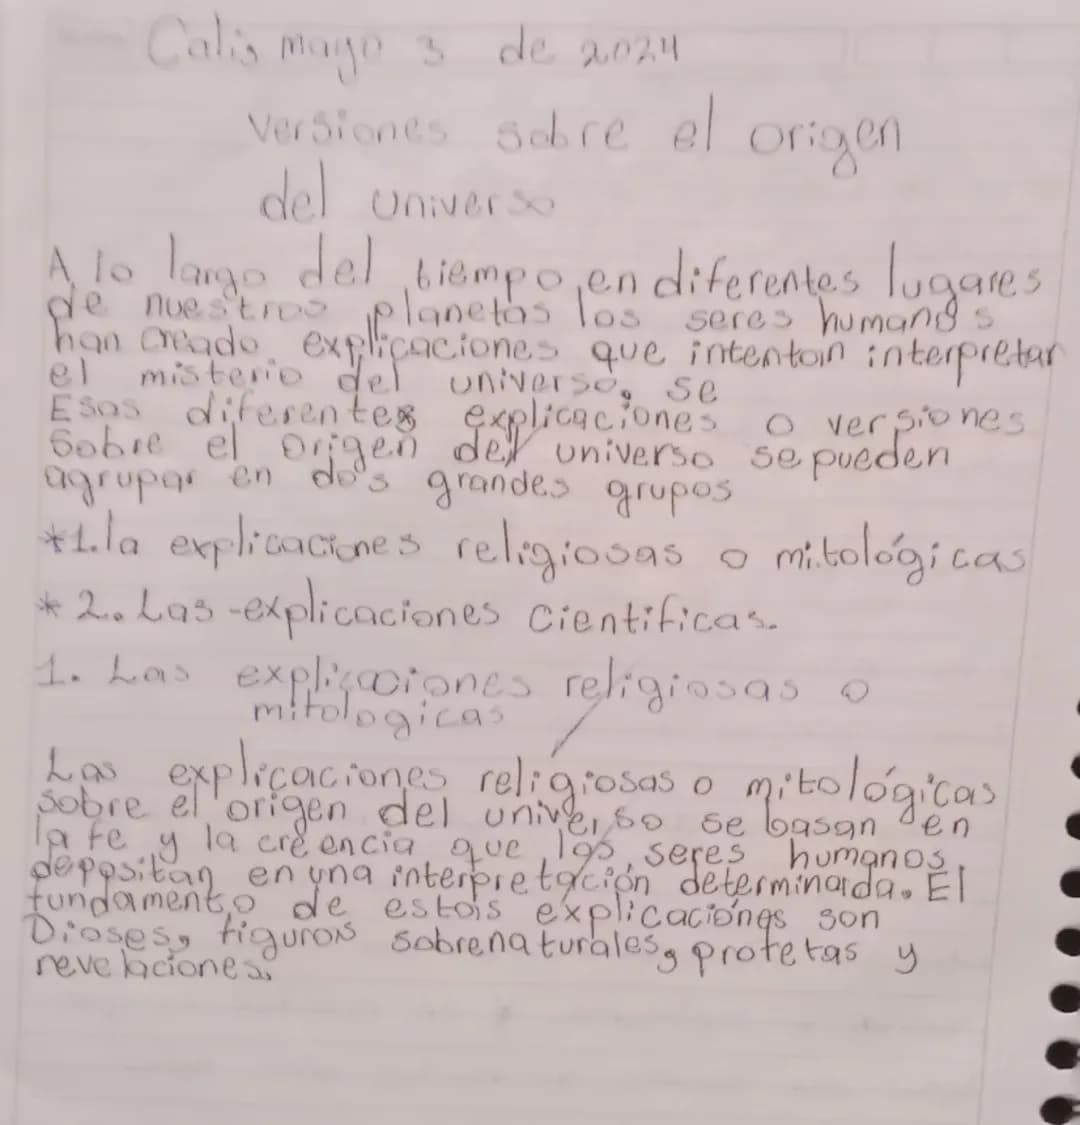 Calis mayo 3 de 2024
versiones sobre el origen
del universo
A lo largo del tiempo, en diferentes lugares
de nuestros planetas los seres humanos
han creado explicaciones que intentan interpretar
el misterio del universo, se
Esas diferentes explicaciones o versiones
Sobre el origen del universo se pueden
agrupar en dos grandes grupos
*1. la explicaciones religiosas o mitológicas
* 2. Las explicaciones Cientificas.
1. Las explicaciones religiosas o
mitologicas
Las explicaciones religiosas o mitológicas
sobre el origen del universo se basan en
la fe y la creencia que los seres humanos
depositan en una interpretación determinada. El
fundamento de estas explicaciónes son
Dioses, figuras sobrenaturales, profetas y
revelaciones.